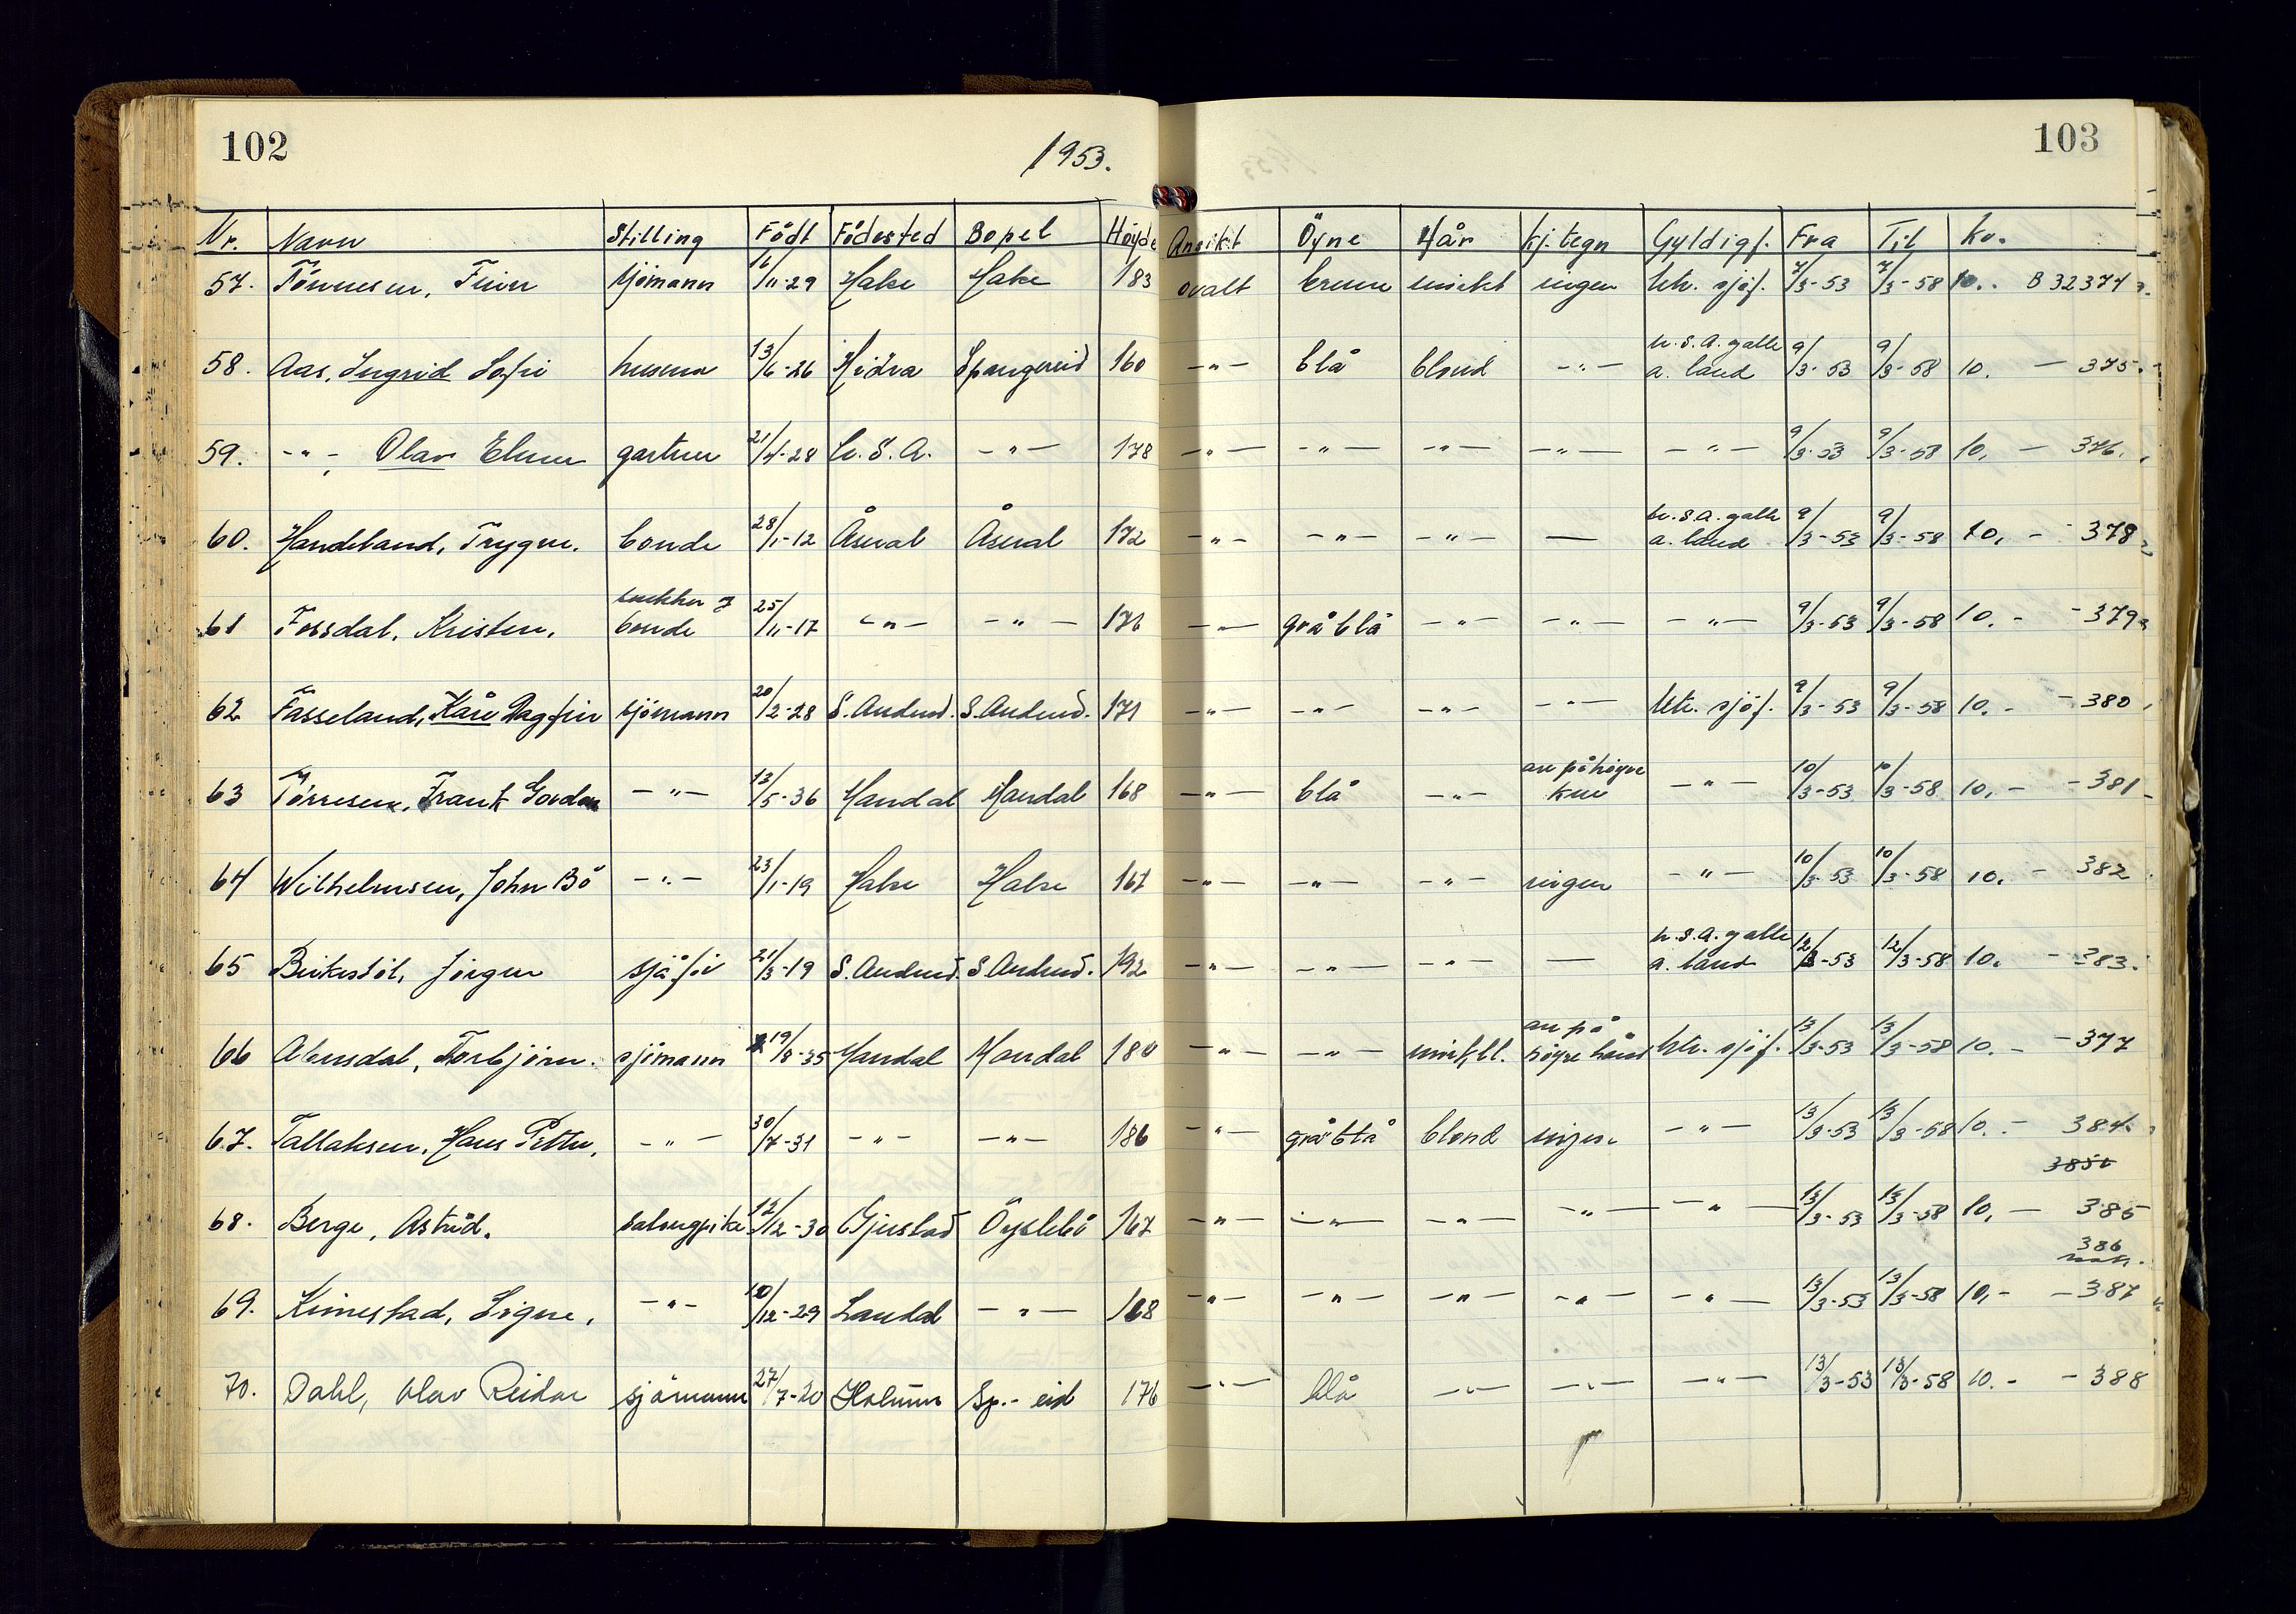 102
1953.
103
Nr. Navn Stilling Födt Födested Bopel Höyde Ansikt Öyne Hår Kj.tegn Gyldigf. Fra Til Kr.
57. Tönnesen, Finn sjömann 16/11-29 Halse Halse 183 ovalt brune mörkt ingen utr. sjöf. 7/3-53 7/3-58 10.. B 32374
58. Aas, Ingrid Sofie husmor 13/6-26 Hidra Spangereid 160 -"- blå blond -"- U.S.A. galle a. land 9/3-53 9/3-58 10. - 375.
59. -"-, Olav Elmer gartner 21/4-28 U.S.A. -"- 178 -"- -"- -"- -"- -"- 9/3-53 9/3-58 10, - 376.
60. Handeland, Trygve. bonde 28/1-12 Åseral Åseral 172 -"- -"- -"- — U.S.A. galle a. land 9/3-53 9/3-58 10, - 378
61 Fossdal, Kristen. snekker og bonde 25/11-17 -"- -"- 176 -"- gråblå -"- -"- -"- 9/3-53 9/3-58 10. - 379
62. Fasseland, Kåre Dagfin sjömann 20/2-28 S. Audned. S. Audned. 171 -"- -"- -"- -"- utr. sjöf. 9/3-53 9/3-58 10. - 380
63 Törresen, Frank Gordon -"- 13/5-36 Mandal Mandal 168 -"- blå -"- arr på högre kne -"- 10/3-53 10/3-58 10, - 381
64 Wilhelmsen, John Bö -"- 23/1-19 Halse Halse 167 -"- -"- -"- ingen -"- 10/3-53 10/3-58 10. - 382
65 Birkestöl, Jörgen sjåför 21/3-19 S. Audned. S. Audned. 192 -"- -"- -"- — U.S.A. galle a. land 12/3-53 12/3-58 10. - 383.
66 Abusdal, Torbjörn. sjömann 19/8-35 Mandal Mandal 180 -"- -"- mörkbl. arr på högre hånd utr. sjöf. 13/3-53 13/3-58 10. - 377
67. Tallaksen, Hans Petter, -"- 30/7-31 -"- -"- 186 -"- gråblå blond ingen -"- 13/3-53 13/3-58 10. - 384.
3850
68. Berge, Astrid. salongpike 12/12-30 Gjerstad Öyslebö 167 -"- -"- -"- -"- -"- 13/3-53 13/3-58 10, - 385
386
mak.
69. Kimestad, Signe, -"- 10/12-29 Laudal -"- 168 -"- -"- -"- -"- -"- 13/3-53 13/3-58 10, - 387
70. Dahl, Olav Reidar sjömann 27/7-20 Holum Sp.-eid 176 -"- blå -"- -"- -"- 13/3-53 13/3-58 10. - 388